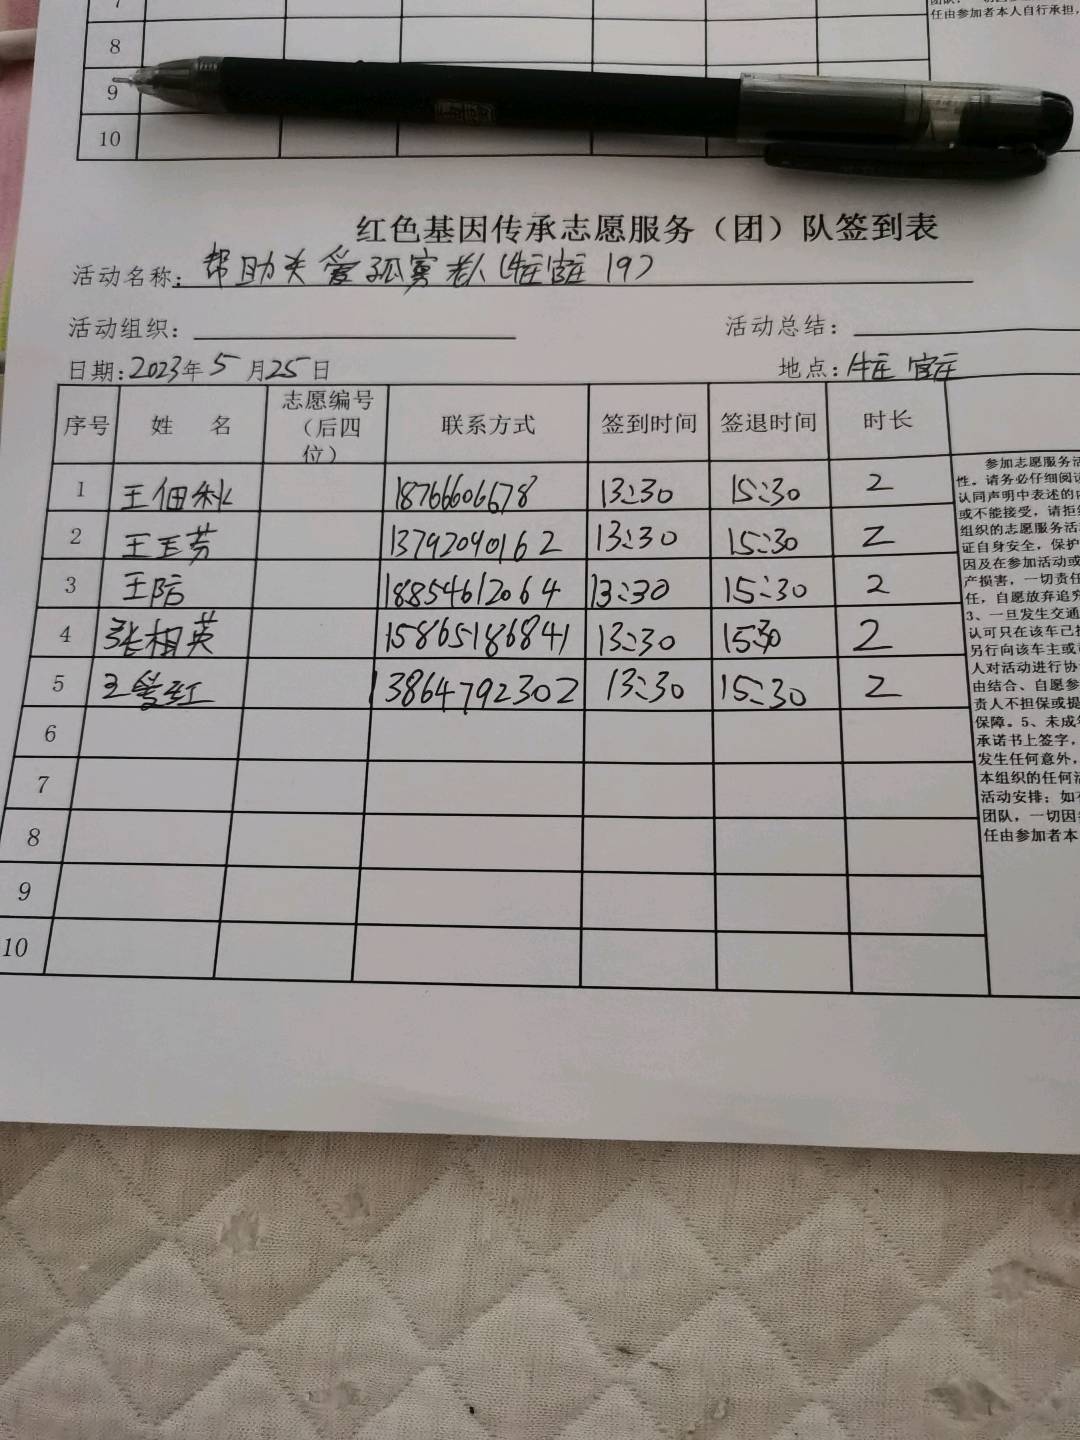 任由参加者本人自行承担，
8
9
10
红色基因传承志愿服务（团）队签到表
活动名称：帮助关爱孤寡老人
活动组织：
活动总结：
日期：2023年5月25日
地点：
序号 姓 名 志愿编号（后四位） 联系方式 签到时间 签退时间 时长
1 王佃秋 18766606678 13:30 15:30 2
2 王玉芳 13792090162 13:30 15:30 2
3 王陪 18854612064 13:30 15:30 2
4 张相英 15865186841 13:30 15:30 2
5 王 红 13864792302 13:30 15:30 2
6
7
8
9
10
参加志愿服务活
性。请务必仔细阅读
认同声明中表述的内
或不能接受，请拒绝
组织的志愿服务活
证自身安全，保护
因及在参加活动或
产损害，一切责任
任，自愿放弃追究
3、一旦发生交通
认可只在该车已投
另行向该车主或
人对活动进行协
由结合、自愿参
责人不担保或提
保障。5、未成年
承诺书上签字，
发生任何意外，
本组织的任何活
活动安排；如有
团队，一切因
任由参加者本